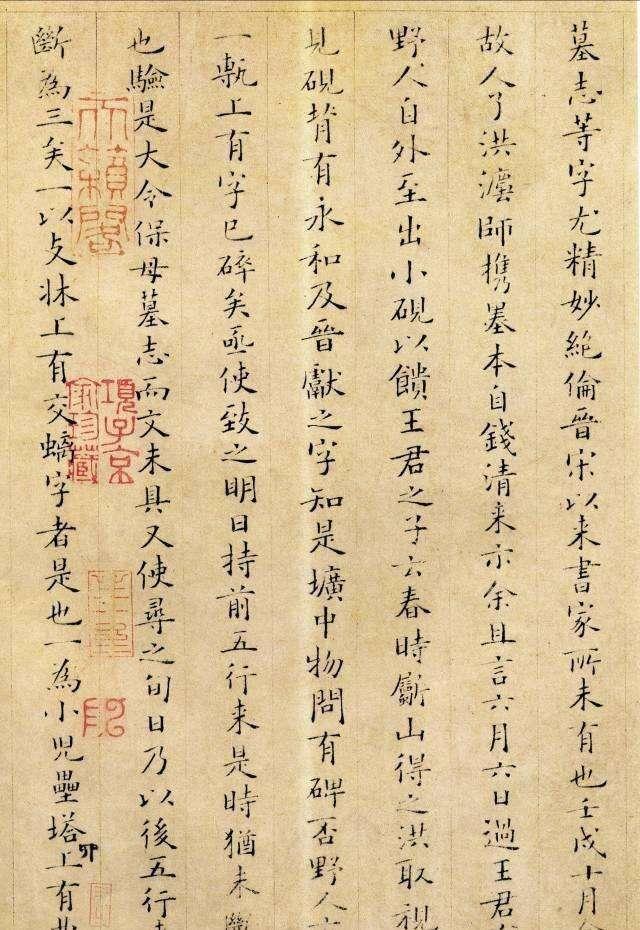 墓志等字尤精妙絶倫晉宋以来書家所未有也壬戌十月
故人了洪灋師㩗墨本自錢清来示余且言六月六日過王君
野人自外至出小硯以饋王君之子云春時斸山得之洪取視
見硯背有永和及晉獻之字知是壙中物問有碑否野人
一甎上有字已碎矣亟使致之明日持前五行来是時猶未斷
也驗是大令保母墓志而文未具又使尋之旬日乃以後五行
斷為三矣一以攴牀上有交螭字者是也一為小兒壘塔上有
卯
天籟閣
項子京
家珍藏